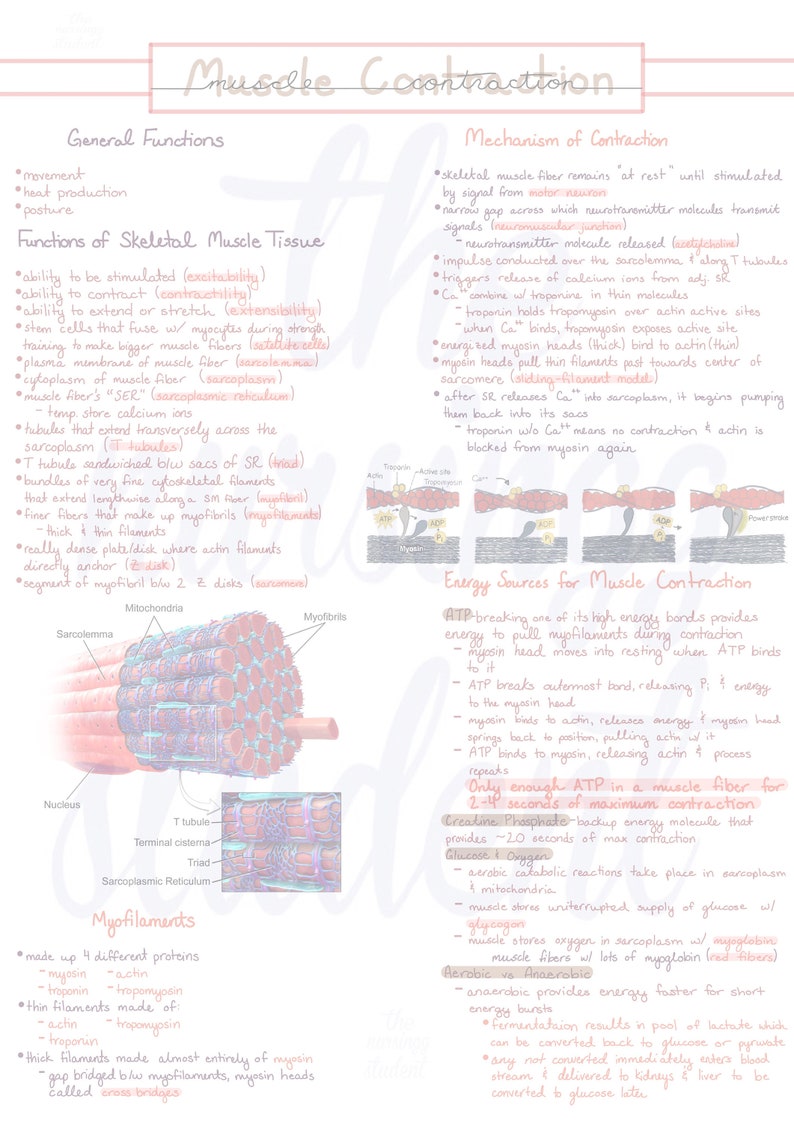 the
nursingg
student
Muscle Contraction
muscle contraction
General Functions
•movement
•heat production
•posture
Functions of Skeletal Muscle Tissue
•ability to be stimulated (excitability)
•ability to contract (contractility)
•ability to extend or stretch (extensibility)
•stem cells that fuse w/ myocytes during strength
training to make bigger muscle fibers (satellite cells)
•plasma membrane of muscle fiber (sarcolemma)
•cytoplasm of muscle fiber (sarcoplasm)
•muscle fiber's "SER" (sarcoplasmic reticulum)
- temp. store calcium ions
•tubules that extend transversely across the
sarcoplasm (T tubules)
•T tubule sandwiched b/w sacs of SR (triad)
•bundles of very fine cytoskeletal filaments
that extend lengthwise along a SM fiber (myofibril)
•finer fibers that make up myofibrils (myofilaments)
- thick & thin filaments
•really dense plate/disk where actin filaments
directly anchor (Z disk)
•segment of myofibril b/w 2 Z disks (sarcomere)
Mitochondria
Sarcolemma
Myofibrils
Nucleus
T tubule
Terminal cisterna
Triad
Sarcoplasmic Reticulum
Myofilaments
•made up 4 different proteins
- myosin - actin
- troponin - tropomyosin
•thin filaments made of:
- actin - tropomyosin
- troponin
•thick filaments made almost entirely of myosin
- gap bridged b/w myofilaments, myosin heads
called cross bridges
Mechanism of Contraction
•skeletal muscle fiber remains "at rest" until stimulated
by signal from motor neuron
•narrow gap across which neurotransmitter molecules transmit
signals (neuromuscular junction)
- neurotransmitter molecule released (acetylcholine)
•impulse conducted over the sarcolemma & along T tubules
•triggers release of calcium ions from adj. SR
•Ca⁺⁺ combine w/ troponine in thin molecules
- troponin holds tropomyosin over actin active sites
- when Ca⁺⁺ binds, tropomyosin exposes active site
•energized myosin heads (thick) bind to actin (thin)
•myosin heads pull thin filaments past towards center of
sarcomere (sliding-filament model)
•after SR releases Ca⁺⁺ into sarcoplasm, it begins pumping
them back into its sacs
- troponin w/o Ca⁺⁺ means no contraction & actin is
blocked from myosin again
Troponin
Actin
Active site
Tropomyosin
ATP
ADP
Pi
Myosin
Ca++
ADP
Pi
ADP
Pi
Power stroke
Energy Sources for Muscle Contraction
ATP-breaking one of its high energy bonds provides
energy to pull myofilaments during contraction
- myosin head moves into resting when ATP binds
to it
- ATP breaks outermost bond, releasing Pi & energy
to the myosin head
- myosin binds to actin, releases energy & myosin head
springs back to position, pulling actin w/ it
- ATP binds to myosin, releasing actin & process
repeats
Only enough ATP in a muscle fiber for
2-4 seconds of maximum contraction
Creatine Phosphate-backup energy molecule that
provides ~20 seconds of max contraction
Glucose & Oxygen
- aerobic catabolic reactions take place in sarcoplasm
& mitochondria
- muscle stores uniterrupted supply of glucose w/
glycogon
- muscle stores oxygen in sarcoplasm w/ myoglobin
muscle fibers w/ lots of myoglobin (red fibers)
Aerobic vs Anaerobic
- anaerobic provides energy faster for short
energy bursts
•fermentataion results in pool of lactate which
can be converted back to glucose or pyruvate
•any not converted immediately enters blood
stream & delivered to kidneys & liver to be
converted to glucose later
the
nursingg
student
the
nursingg
student